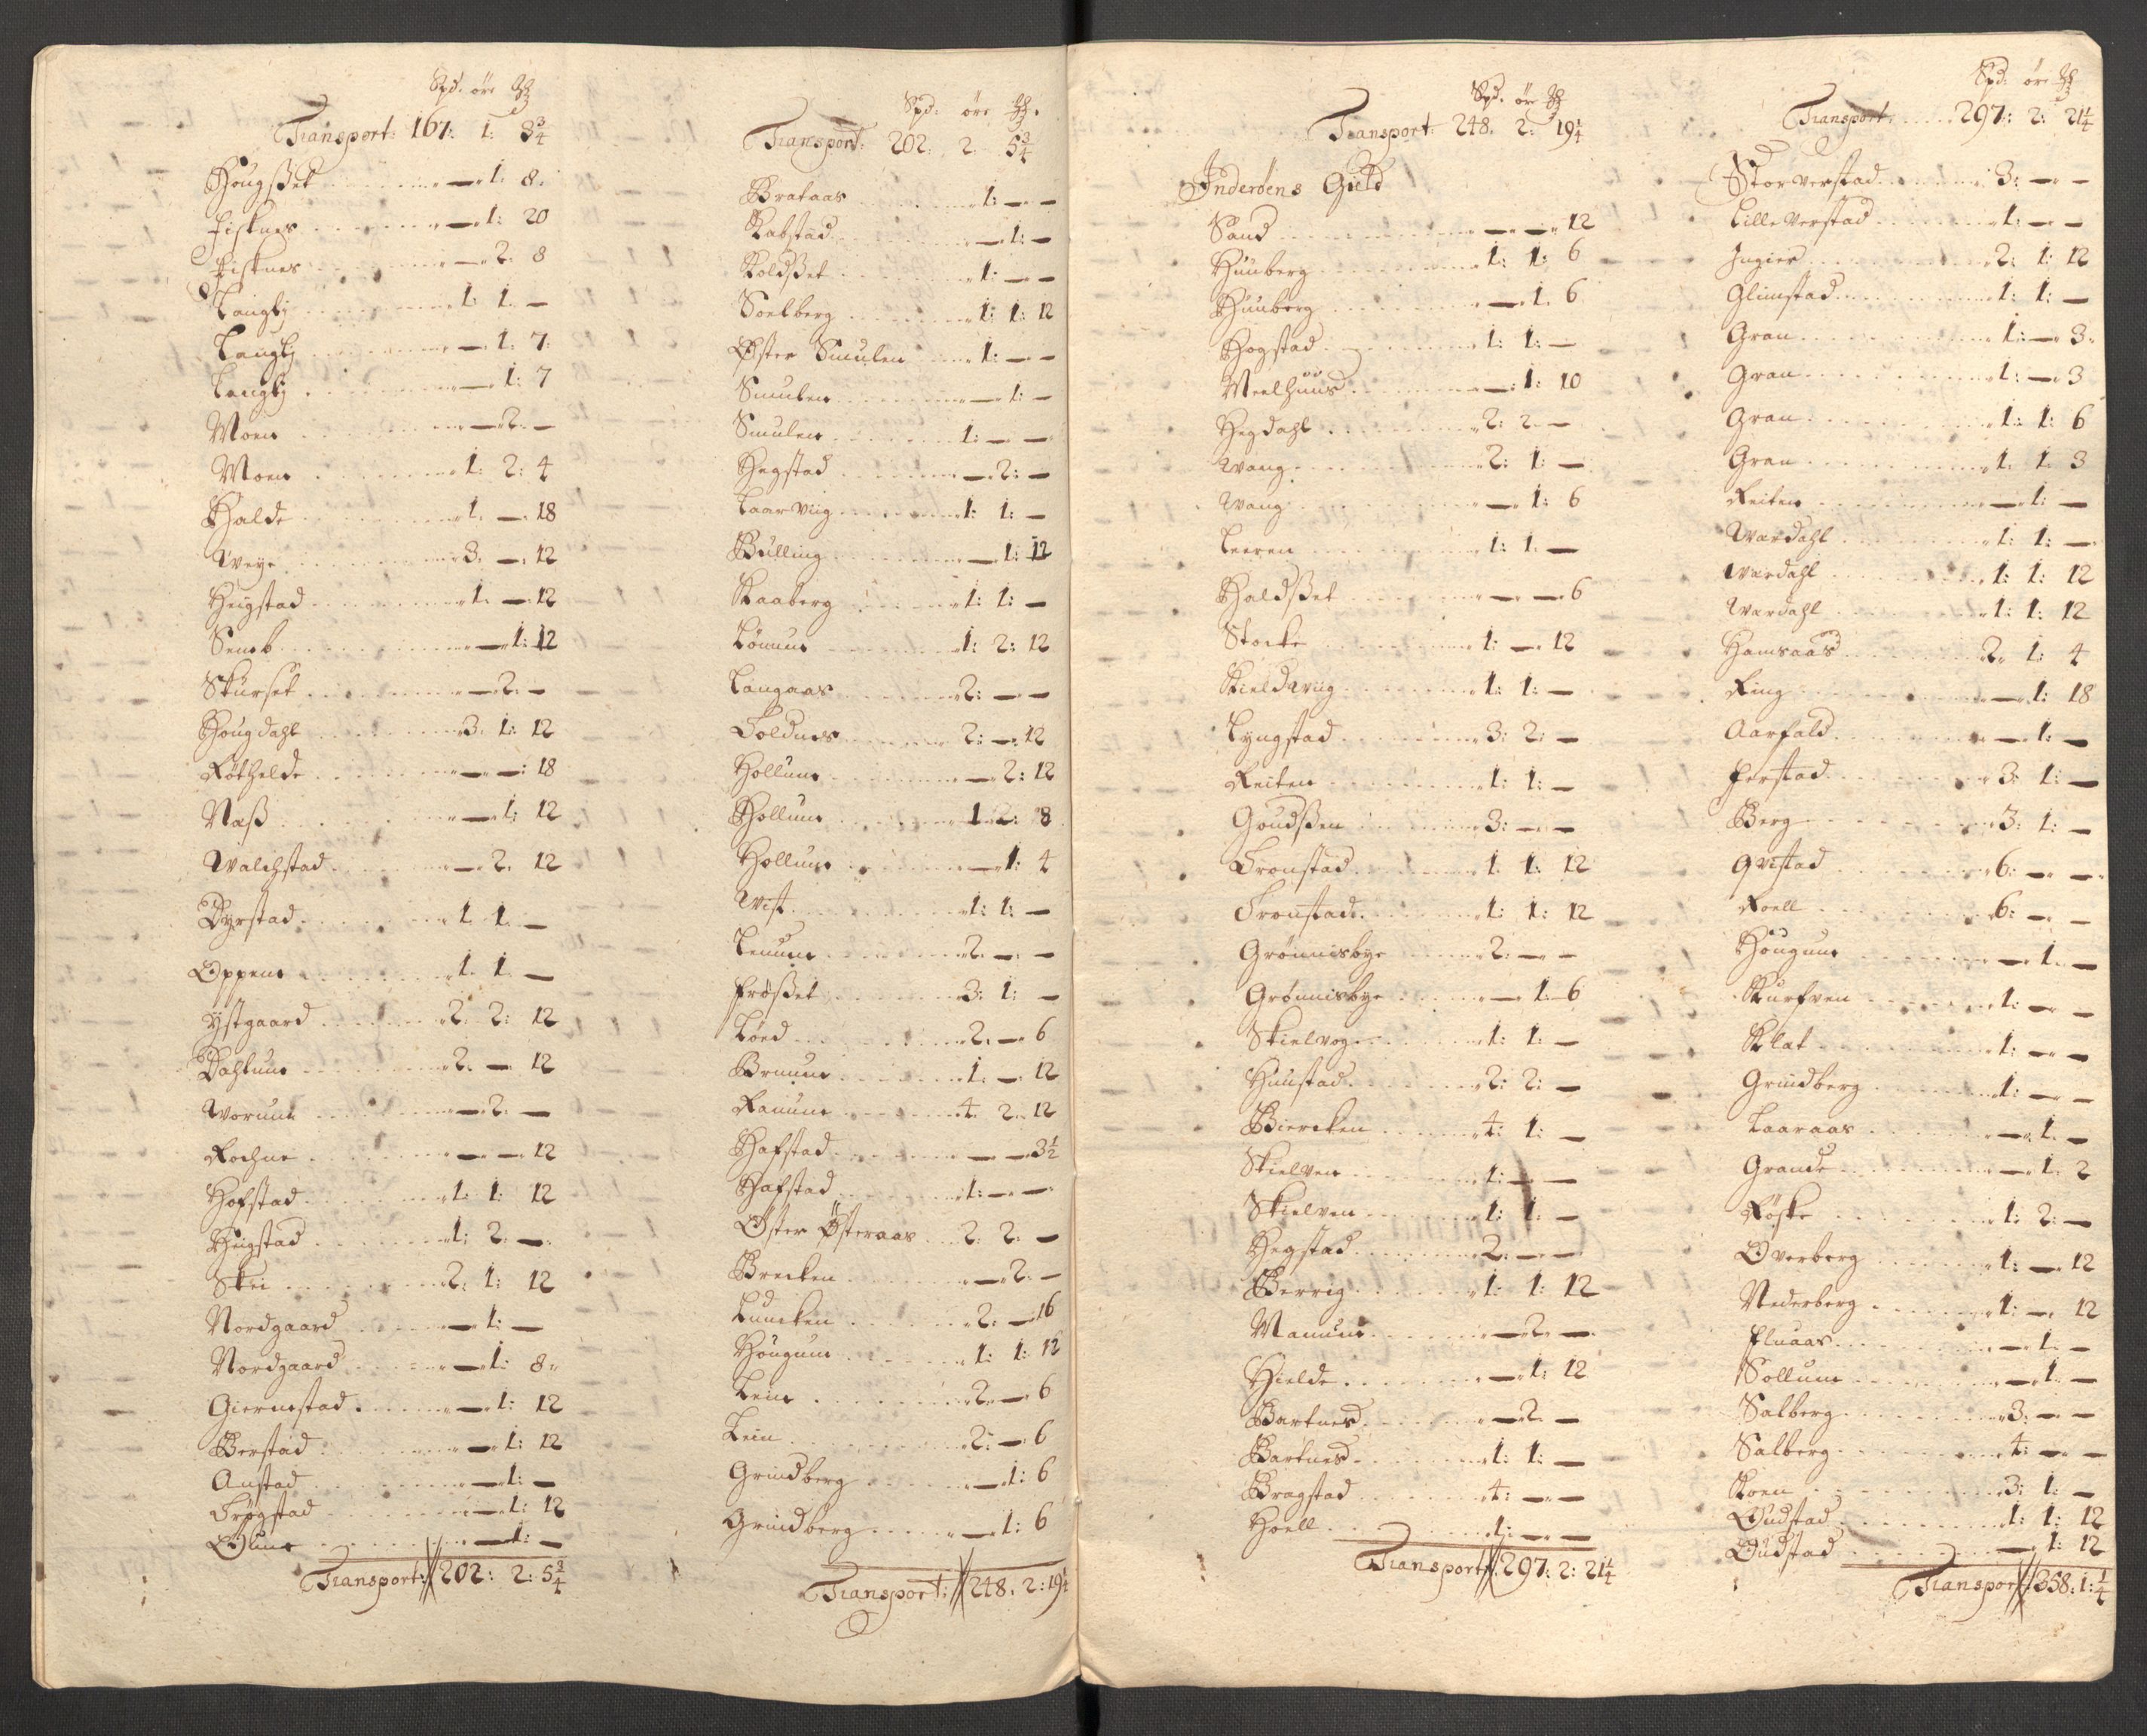 Spd. öre
Transport: 167: 1: 3¾
Hougßet — 1. 8.
Fisknes — 1: 20
Fisknes — 2. 8
Langbÿ 1. 1. —
Langbÿ — 1. 7.
Langbÿ — 1: 7
Moen — 2. —
Moen 1. 2: 4
Halde 1. — 18
Weye 3. — 12
Hegstad 1. — 12
Semb — 1: 12
Skurset — 2. —
Hougdahl 3. 1: 12
Røthelde — — 18
Næß — 1: 12
Walchstad — 2. 12
Dyrstad 1. 1. —
Oppem 1. 1. —
Ystgaard 2. 2: 12
Dahlum 2. — 12
Worum — 2. —
Rochne — — 12
Hofstad 1. 1: 12
Hegstad 1: 2. —
Skei 2. 1: 12
Nordgaard — 1: —
Nordgaard — 1: 8
Giermstad — 1: 12
Berstad — 1: 12
Anstad — 1: —
Trøgstad — 1: 12
Olum — 1: —
Transport: 202: 2: 5¾
Spd: öre
Transport: 202. 2. 5¾
Brataas 1: — —
Rabstad — 1: —
Koldßet 1: — —
Soelberg 1: 1: 12
Øster Smulen 1: — —
Smulen — 1: —
Smulen 1: — —
Hegstad — 2: —
Laarviig 1: 1: —
Bulling — 1: 12
Kaaberg 1: 1: —
Lömum 1: 2: 12
Langaas 2: — —
Toldnes 2: — 12
Hollum — 2: 12
Hollum 1 2: 8
Hollum — 1: 4
Wist 1: 1: —
Lemum 2. — —
Frößet 3: 1: —
Löed 2. — 6
Brumm 1. — 12
Ranum 4. 2. 12
Hafstad — — 3½
Hafstad 1: — —
Öster Østeraas 2. 2. —
Brecken — 2. —
Luncken 2. — 16
Hougum 1: 1: 12
Lein 2. — 6
Lein 2: — 6
Grindberg — 1: 6
Grindberg — 1: 6
Transport: 248. 2: 19¼
Spd. öre
Transport: 248. 2: 19¼
Inderöens Gield
Sand — — 12
Hunberg 1: 1: 6
Hunberg — 1. 6
Hogstad 1: 1: —
Meelhuus — 1: 10
Hegdahl 2: 2. —
Wang 2: 1: —
Wang — 1: 6
Leeren 1: 1. —
Haldßet — — 6
Stocke 1: — 12
Kieldwiig 1: 1: —
Lyngstad 3: 2: —
Reiten 1: 1: —
Goudßen 3: — —
Tronstad 1. 1: 12
Tronstad 1: 1: 12
Grönnisbye 2: — —
Grönnisbye — 1. 6
Skielvog 1: 1: —
Hunstad 2: 2: —
Biercken 4: 1: —
Skielven 1: — —
Skielven 1: 1. —
Hegstad 2. — —
Berrig 1: 1: 12
Mannum — 2. —
Hielde — 1: 12
Bartnes — 2. —
Bartnes 1: 1: —
Bragstad 4: — —
Hoell 1: — —
Transport 297: 2: 21¼
Spd: öre
Transport 297: 2: 21¼
Storverstad 3: — —
Lilleverstad 1: — —
Ingier 2: 1: 12
Glimstad 1: 1: —
Gran 1: — 3.
Gran 1: — 3
Gran 1: 1: 6
Gran 1. 1. 3
Reiten — 1: —
Wardahl 1: 1: —
Wardahl 1: 1: 12
Wardahl 1: 1: 12
Hamsaas 2. 1: 4
Ring — 1: 18
Aarfald — 1: —
Ferstad 3: 1: —
Berg 3: 1: —
Qvistad 6: — —
Roell 6: — —
Hougum — 1. —
Kurfven 1: — —
Klat 1: — —
Grindberg 1: — —
Laaraas — 1. —
Grande — 1. 2
Röske 1: 2: —
Overberg 1: — 12
Nederberg 1: — 12
Fluaas — 1. —
Sollum — 1. —
Salberg 3: — —
Salberg 4: — —
Koen 3: 1: —
Oudstad 1. 1: 12
Oudstad — 1: 12
Transport: 358: 1: ¼